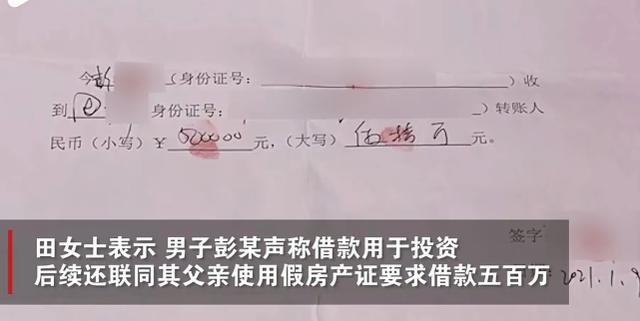 今彭（身份证号：）收
到田身份证号：）转账人
民币（小写）￥500000元，（大写）伍拾万元。
签字
2021.1.9
田女士表示 男子彭某声称借款用于投资
后续还联同其父亲使用假房产证要求借款五百万